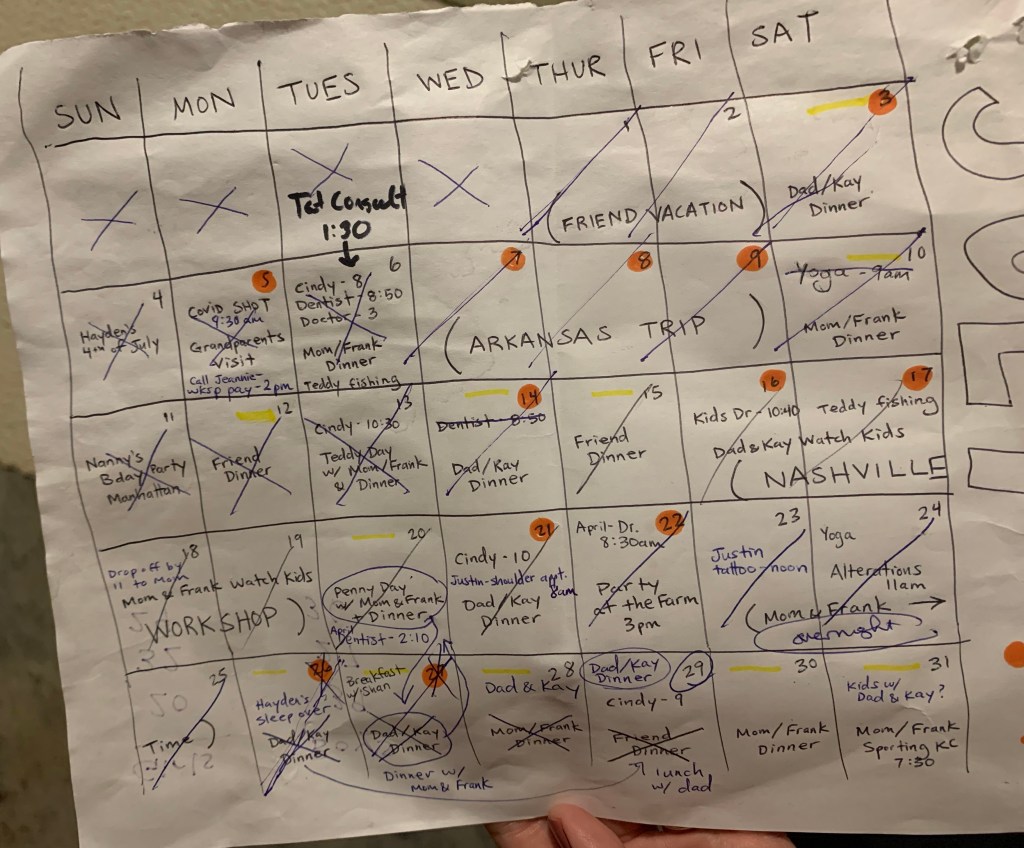 SUN MON TUES WED THUR FRI SAT
Tat Consult
1:30
1
2
(FRIEND VACATION)
3
Dad/Kay
Dinner
4
Hayden's
4th of July
5
Covid SHOT
9:30 am
Grandparents
Visit
Call Jeannie-
wksp pay - 2pm
6
Cindy - 8
Dentist - 8:50
Doctor - 3
Mom/Frank
Dinner
Teddy fishing
7
8
9
(ARKANSAS TRIP)
10
Yoga - 9am
Mom/Frank
Dinner
11
Nanny's
Bday Party
Manhattan
12
Friend
Dinner
13
Cindy - 10:30
Teddy Day
w/ Mom/Frank
& Dinner
14
Dentist - 8:50
Dad/Kay
Dinner
15
Friend
Dinner
16
17
Kids Dr - 10:40
Teddy fishing
Dad & Kay Watch Kids
(NASHVILLE
18
19
Drop off by
11 to Mom
Mom & Frank Watch Kids
WORKSHOP)
20
Penny Day
w/ Mom & Frank
+ Dinner
April
Dentist - 2:10
21
Cindy - 10
Justin-shoulder appt.
8am
Dad/Kay
Dinner
22
April-Dr.
8:30am
Party
at the Farm
3pm
23
Justin
tattoo-noon
24
Yoga
Alterations
11am
(Mom & Frank →
overnight
25
Time)
26
Hayden's
sleepover
Dad/Kay
Dinner
27
Breakfast
w/Shan
Dad/Kay
Dinner
Dinner w/
Mom & Frank
28
Dad & Kay
Mom/Frank
Dinner
29
Dad/Kay
Dinner
Cindy - 9
Friend
Dinner
lunch
w/ dad
30
Mom/Frank
Dinner
31
Kids w/
Dad & Kay?
Mom/Frank
Sporting KC
7:30